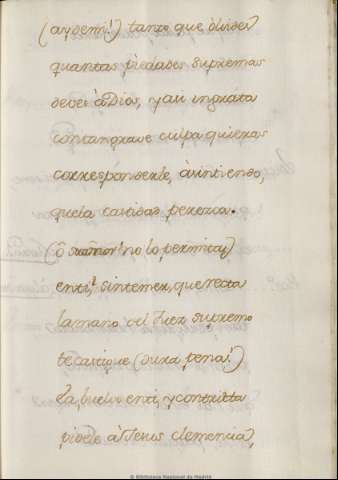 (ay de mi!) tanto que olvides
quantas piedades supremas
deves à Dios, y assi ingrata
con tan grave culpa quieras
corresponderle,
que la castidad perezca.
(ô señor! no lo permitas)
en ti, sin temer, que recta
la mano del Juez supremo
te castigue (dura pena!)
Ea, buelve en ti, y contritta
pidele à Jesus clemencia,
© Biblioteca Nacional de Madrid